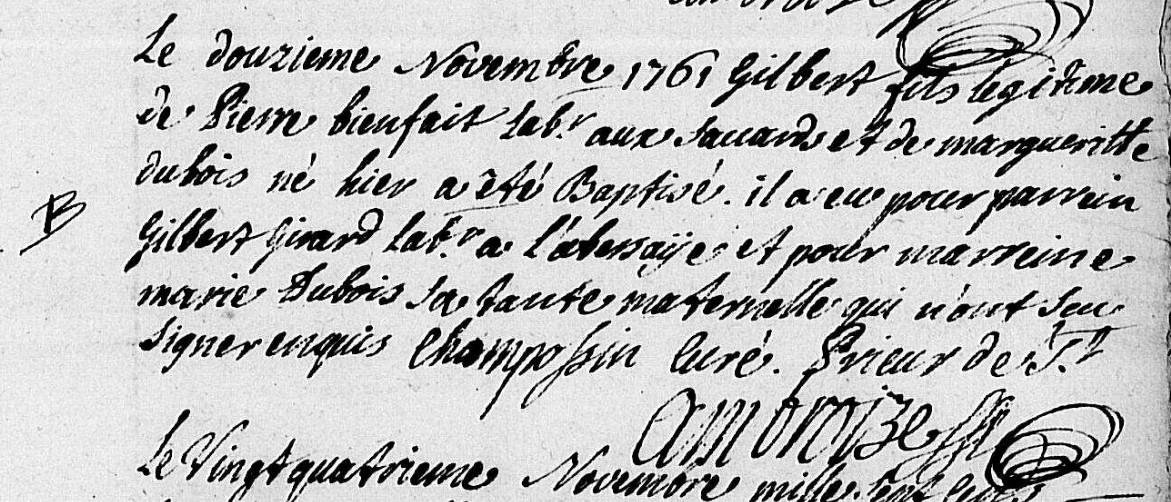 Le douzieme Novembre 1761 Gilbert fils legitime
de Pierre bienfait Labr. aux Sauvards et de margueritte
dubois né hier a été Baptisé. il a eu pour parrein
B
Gilbert Girard Labr. a et pour marreine
marie Dubois sa tante maternelle qui n'ont seu
signer enquis Champossin Curé. Prieur de St.
amoroize
Le Vingtquatrieme Novembre mille sept cent